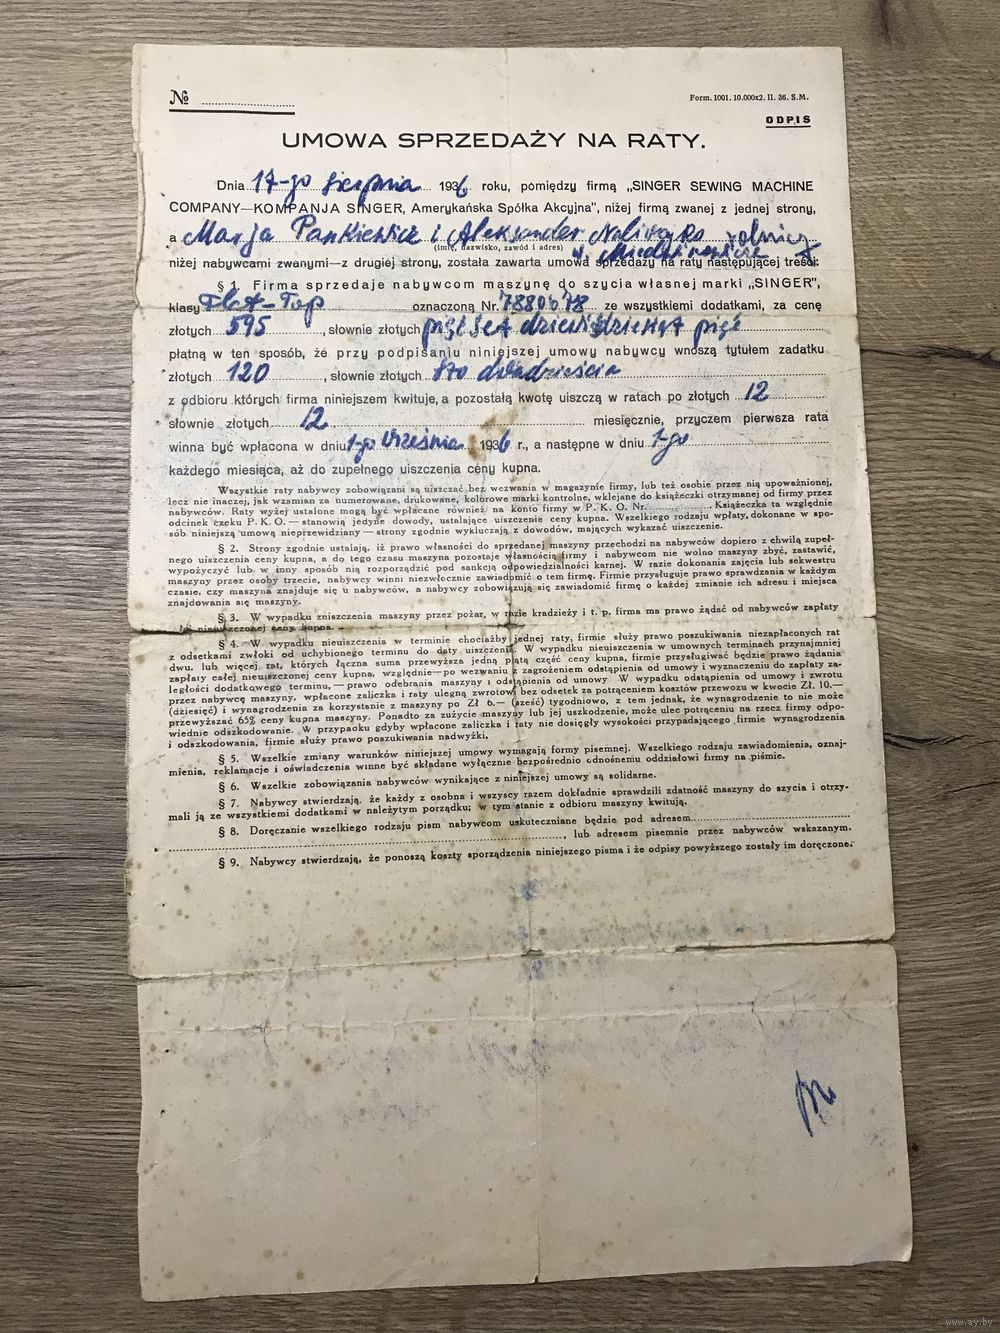 № ..............................
Form. 1001. 10.000x2. II. 36. S.M.
ODPIS
UMOWA SPRZEDAŻY NA RATY.
Dnia 17-go sierpnia 1936 roku, pomiędzy firmą „SINGER SEWING MACHINE
COMPANY—KOMPANJA SINGER, Amerykańska Spółka Akcyjna", niżej firmą zwanej z jednej strony,
a Marja Pankiewicz i Aleksander rolnicy
(imię, nazwisko, zawód i adres)
niżej nabywcami zwanymi—z drugiej strony, została zawarta umowa sprzedaży na raty następującej treści:
§ 1. Firma sprzedaje nabywcom maszynę do szycia własnej marki „SINGER",
klasy Flat-Top oznaczoną Nr. 7880678 ze wszystkiemi dodatkami, za cenę
złotych 595, słownie złotych pięćset dziewiędziesiąt pięć
płatną w ten sposób, że przy podpisaniu niniejszej umowy nabywcy wnoszą tytułem zadatku
złotych 120, słownie złotych sto dwadzieścia
z odbioru których firma niniejszem kwituje, a pozostałą kwotę uiszczą w ratach po złotych 12
słownie złotych 12 miesięcznie, przyczem pierwsza rata
winna być wpłacona w dniu 1-go Września 1936 r., a następne w dniu 1-go
każdego miesiąca, aż do zupełnego uiszczenia ceny kupna.
Wszystkie raty nabywcy zobowiązani są uiszczać bez wezwania w magazynie firmy, lub też osobie przez nią upoważnionej,
lecz nie inaczej, jak wzamian za numerowane, drukowane, kolorowe marki kontrolne, wklejane do książeczki otrzymanej od firmy przez
nabywców. Raty wyżej ustalone mogą być wpłacane również na konto firmy w P. K. O. Nr. .............. Książeczka ta względnie
odcinek czeku P. K. O. — stanowią jedyne dowody, ustalające uiszczenie ceny kupna. Wszelkiego rodzaju wpłaty, dokonane w spo-
sób niniejszą umową nieprzewidziany — strony zgodnie wykluczają z dowodów, mających wykazać uiszczenie.
§ 2. Strony zgodnie ustalają, iż prawo własności do sprzedanej maszyny przechodzi na nabywców dopiero z chwilą zupeł-
nego uiszczenia ceny kupna, a do tego czasu maszyna pozostaje własnością firmy i nabywcom nie wolno maszyny zbyć, zastawić,
wypożyczyć lub w inny sposób nią rozporządzić pod sankcją odpowiedzialności karnej. W razie dokonania zajęcia lub sekwestru
maszyny przez osoby trzecie, nabywcy winni niezwłocznie zawiadomić o tem firmę. Firmie przysługuje prawo sprawdzania w każdym
czasie, czy maszyna znajduje się u nabywców, a nabywcy zobowiązują się zawiadomić firmę o każdej zmianie ich adresu i miejsca
znajdowania się maszyny.
§ 3. W wypadku zniszczenia maszyny przez pożar, w razie kradzieży i t. p. firma ma prawo żądać od nabywców zapłaty
całej nieuiszczonej ceny kupna.
§ 4. W wypadku nieuiszczenia w terminie chociażby jednej raty, firmie służy prawo poszukiwania niezapłaconych rat
z odsetkami zwłoki od uchybionego terminu do daty uiszczenia. W wypadku nieuiszczenia w umownych terminach przynajmniej
dwu, lub więcej rat, których łączna suma przewyższa jedną piątą część ceny kupna, firmie przysługiwać będzie prawo żądania
zapłaty całej nieuiszczonej ceny kupna, względnie—po wezwaniu z zagrożeniem odstąpienia od umowy i wyznaczeniu do zapłaty za-
ległości dodatkowego terminu,—prawo odebrania maszyny i odstąpienia od umowy. W wypadku odstąpienia od umowy i zwrotu
przez nabywcę maszyny, wpłacone zaliczka i raty ulegną zwrotowi bez odsetek za potrąceniem kosztów przewozu w kwocie Zł. 10.—
(dziesięć) i wynagrodzenia za korzystanie z maszyny po Zł 6.— (sześć) tygodniowo, z tem jednak, że wynagrodzenie to nie może
przewyższać 65% ceny kupna maszyny. Ponadto za zużycie maszyny lub jej uszkodzenie, może ulec potrąceniu na rzecz firmy odpo-
wiednie odszkodowanie. W przypadku gdyby wpłacone zaliczka i raty nie dosięgły wysokości przypadającego firmie wynagrodzenia
i odszkodowania, firmie służy prawo poszukiwania nadwyżki.
§ 5. Wszelkie zmiany warunków niniejszej umowy wymagają formy pisemnej. Wszelkiego rodzaju zawiadomienia, oznaj-
mienia, reklamacje i oświadczenia winne być składane wyłącznie bezpośrednio odnośnemu oddziałowi firmy na piśmie.
§ 6. Wszelkie zobowiązania nabywców wynikające z niniejszej umowy są solidarne.
§ 7. Nabywcy stwierdzają, że każdy z osobna i wszyscy razem dokładnie sprawdzili zdatność maszyny do szycia i otrzy-
mali ją ze wszystkiemi dodatkami w należytym porządku; w tym stanie z odbioru maszyny kwitują.
§ 8. Doręczanie wszelkiego rodzaju pism nabywcom uskuteczniane będzie pod adresem..............................
.............................., lub adresem pisemnie przez nabywców wskazanym.
§ 9. Nabywcy stwierdzają, że ponoszą koszty sporządzenia niniejszego pisma i że odpisy powyższego zostały im doręczone.
www.ay.by